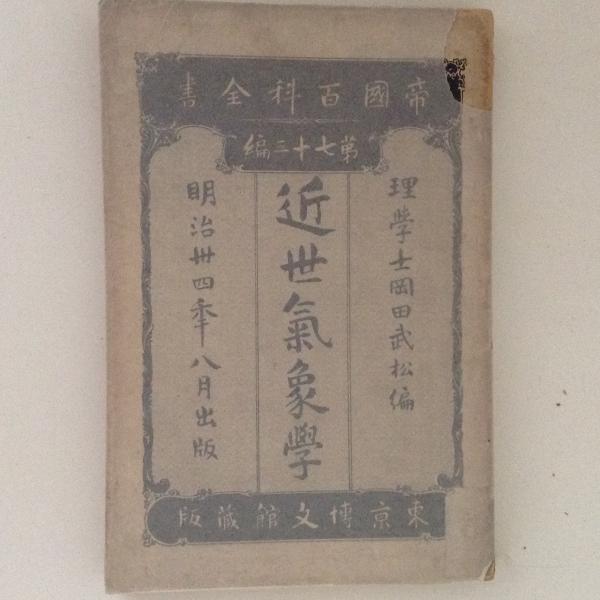 帝國百科全書
第七十三編
理學士岡田武松編
近世氣象學
明治卅四年八月出版
東京博文館蔵版